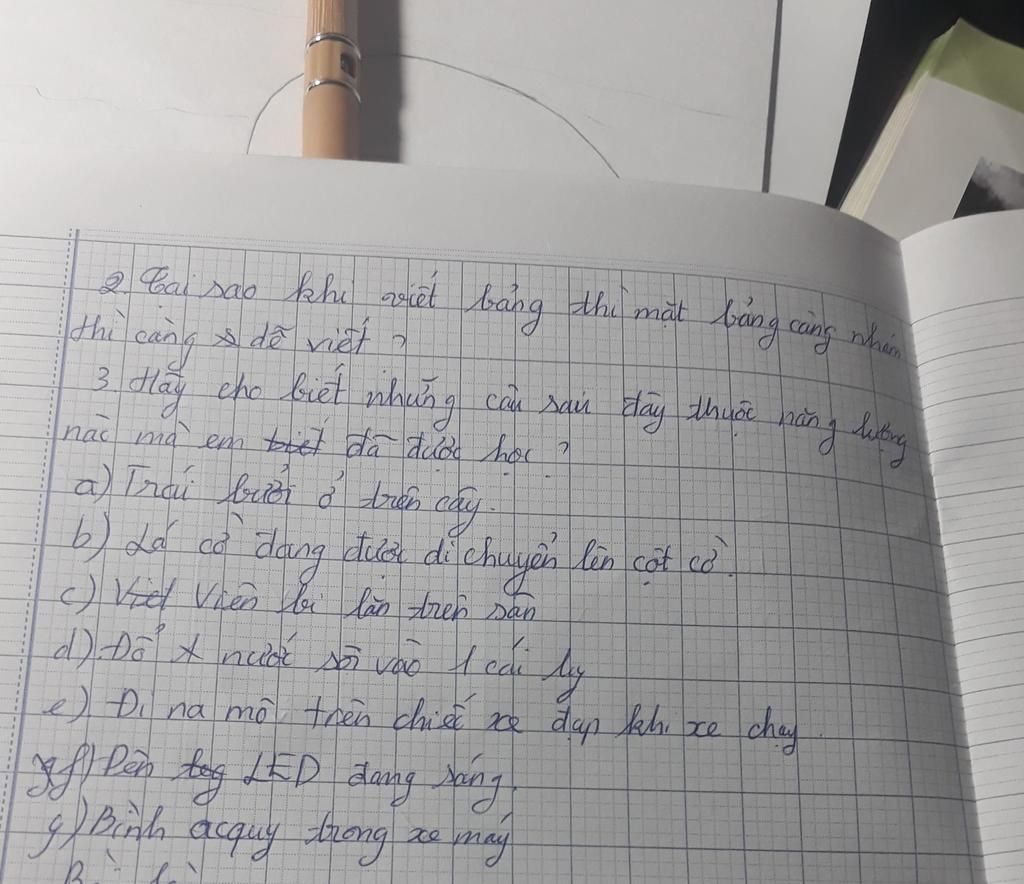 2. Tại sao khi viết bảng thì mặt bảng càng nhám
thì càng dễ viết ?
3. Hãy cho biết những câu sau đây thuộc năng lượng
nào mà em biết đã được học ?
a) Trái bưởi ở trên cây.
b) Lá cờ đang được di chuyển lên cột cờ.
c) Viet Viên bi lăn trên sàn
d) Đổ nước sôi vào 1 cái ly
e) Đi na mô trên chiếc xe đạp khi xe chạy.
f) Đèn LED đang sáng.
g) Bình acquy trong xe máy